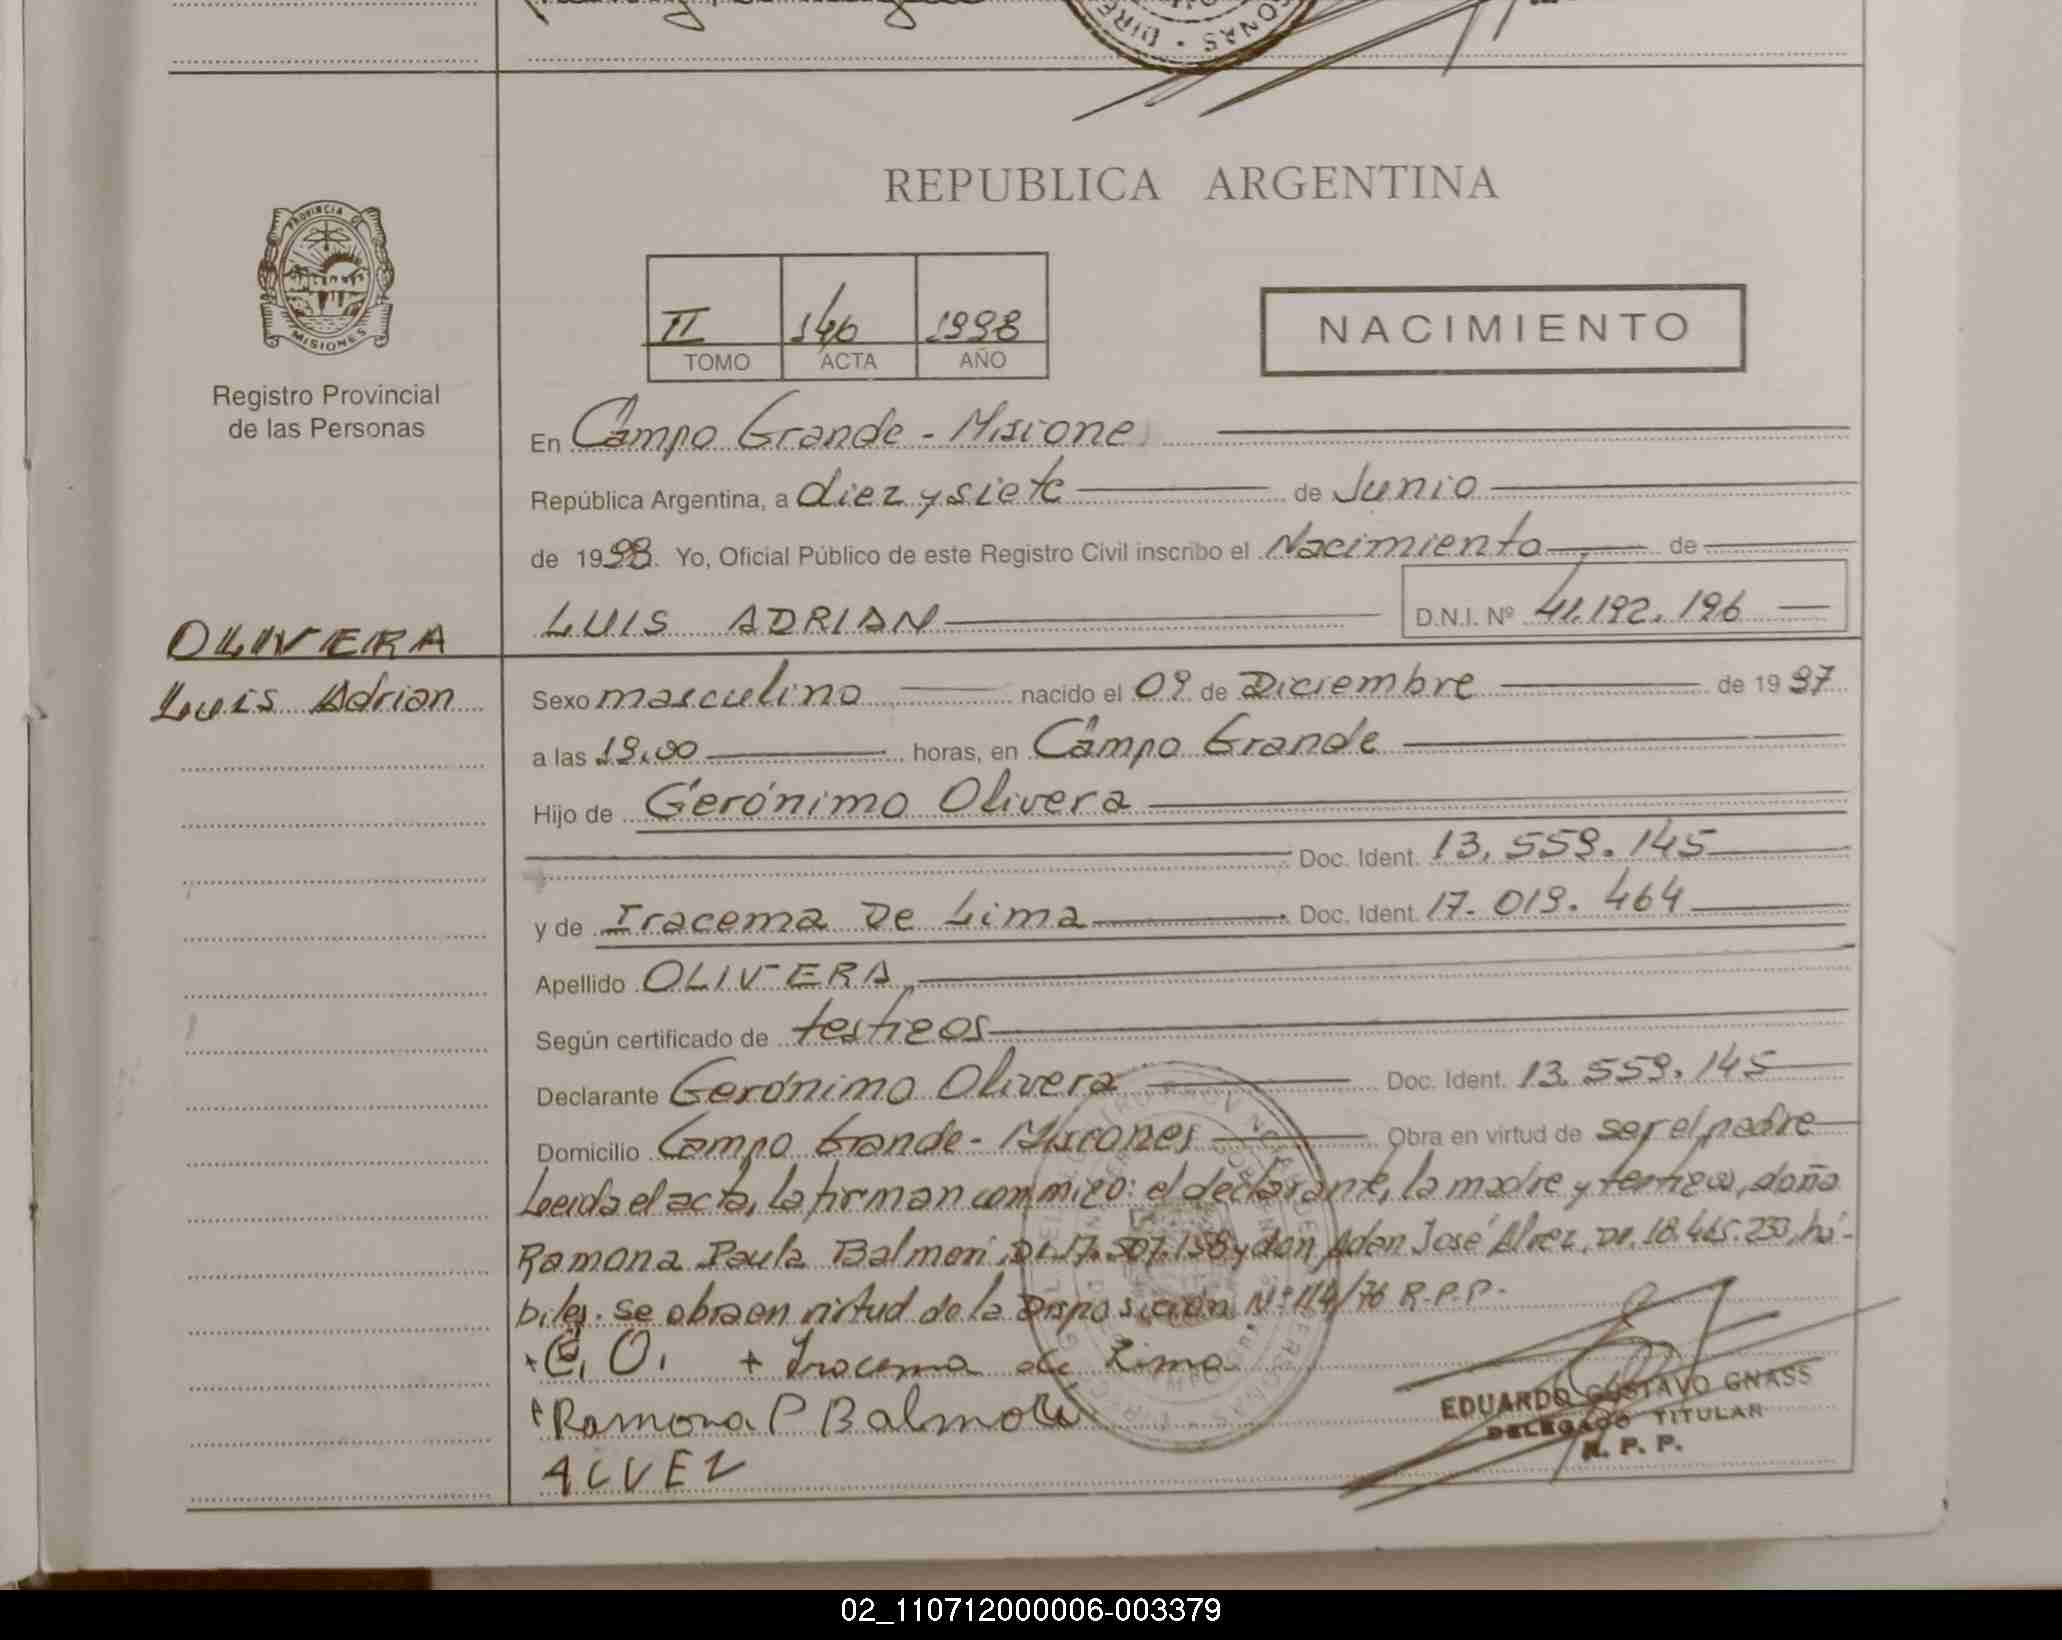 REPUBLICA ARGENTINA
PROVINCIA DE
MISIONES
Registro Provincial
de las Personas
II 146 1998
TOMO ACTA AÑO
NACIMIENTO
En Campo Grande - Misiones
República Argentina, a diez y siete de Junio
de 1998. Yo, Oficial Público de este Registro Civil inscribo el Nacimiento de
LUIS ADRIAN D.N.I. Nº 41.192.196
OLIVERA
Luis Adrian
Sexo masculino nacido el 09 de Diciembre de 1997
a las 19,00 horas, en Campo Grande
Hijo de Gerónimo Olivera
Doc. Ident. 13.559.145
y de Iracema De Lima Doc. Ident. 17.019.464
Apellido OLIVERA
Según certificado de testigos
Declarante Gerónimo Olivera Doc. Ident. 13.559.145
Domicilio Campo Grande - Misiones Obra en virtud de ser el padre
Leida el acta, la firman conmigo: el declarante, la madre y testigos, doña
Ramona Paula Balmori, DI. 17.507.158 y don Adan José Alvez, DI. 18.465.233, há-
biles. Se obra en virtud de la Disposición Nº 114/76 R.P.P.
+ G. O. + Iracema de Lima
Ramona P Balmori
ALVEZ
EDUARDO GUSTAVO GNASS
DELEGADO TITULAR
R. P. P.
02_110712000006-003379